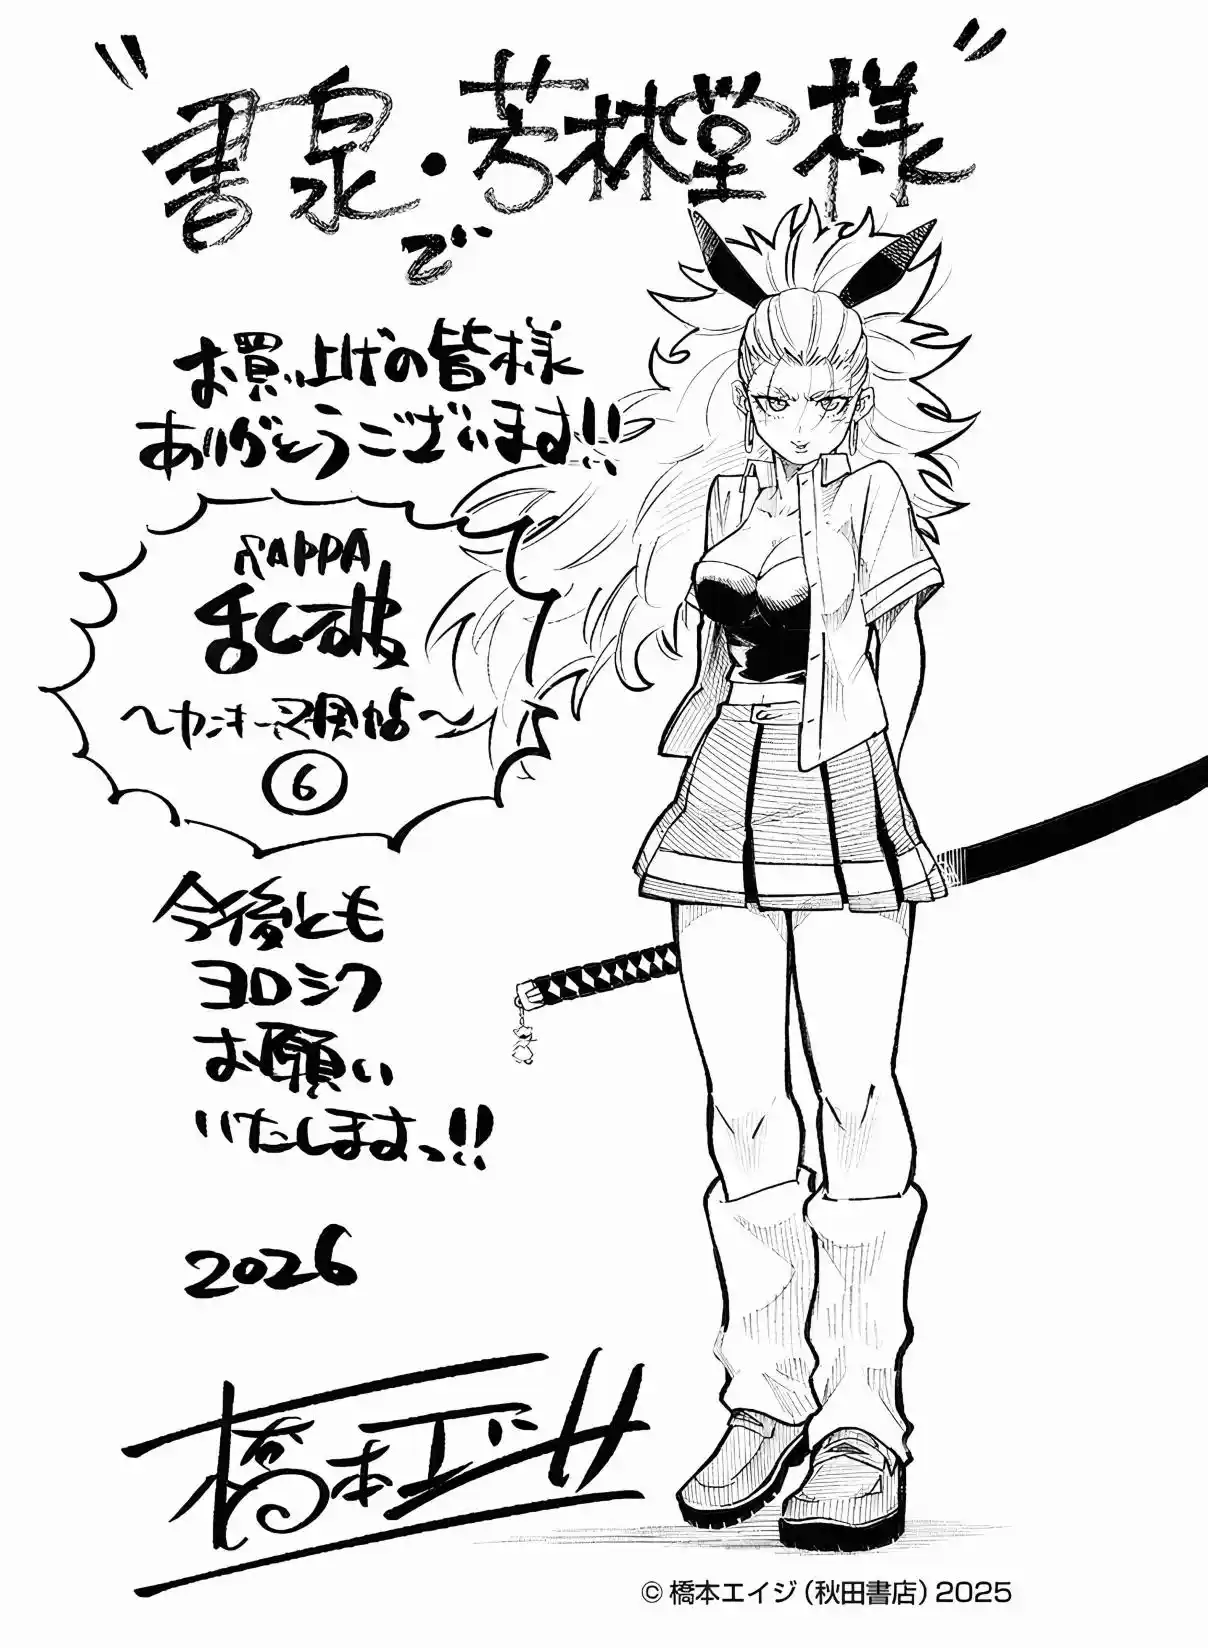 "書泉・芳林堂様"
で
お買い上げの皆様
ありがとうございます!!
RAPPA
乱破
～カンキ一忍風帖～
⑥
今後とも
ヨロシク
お願い
いたしますっ!!
2026
橋本エイジ
© 橋本エイジ（秋田書店）2025